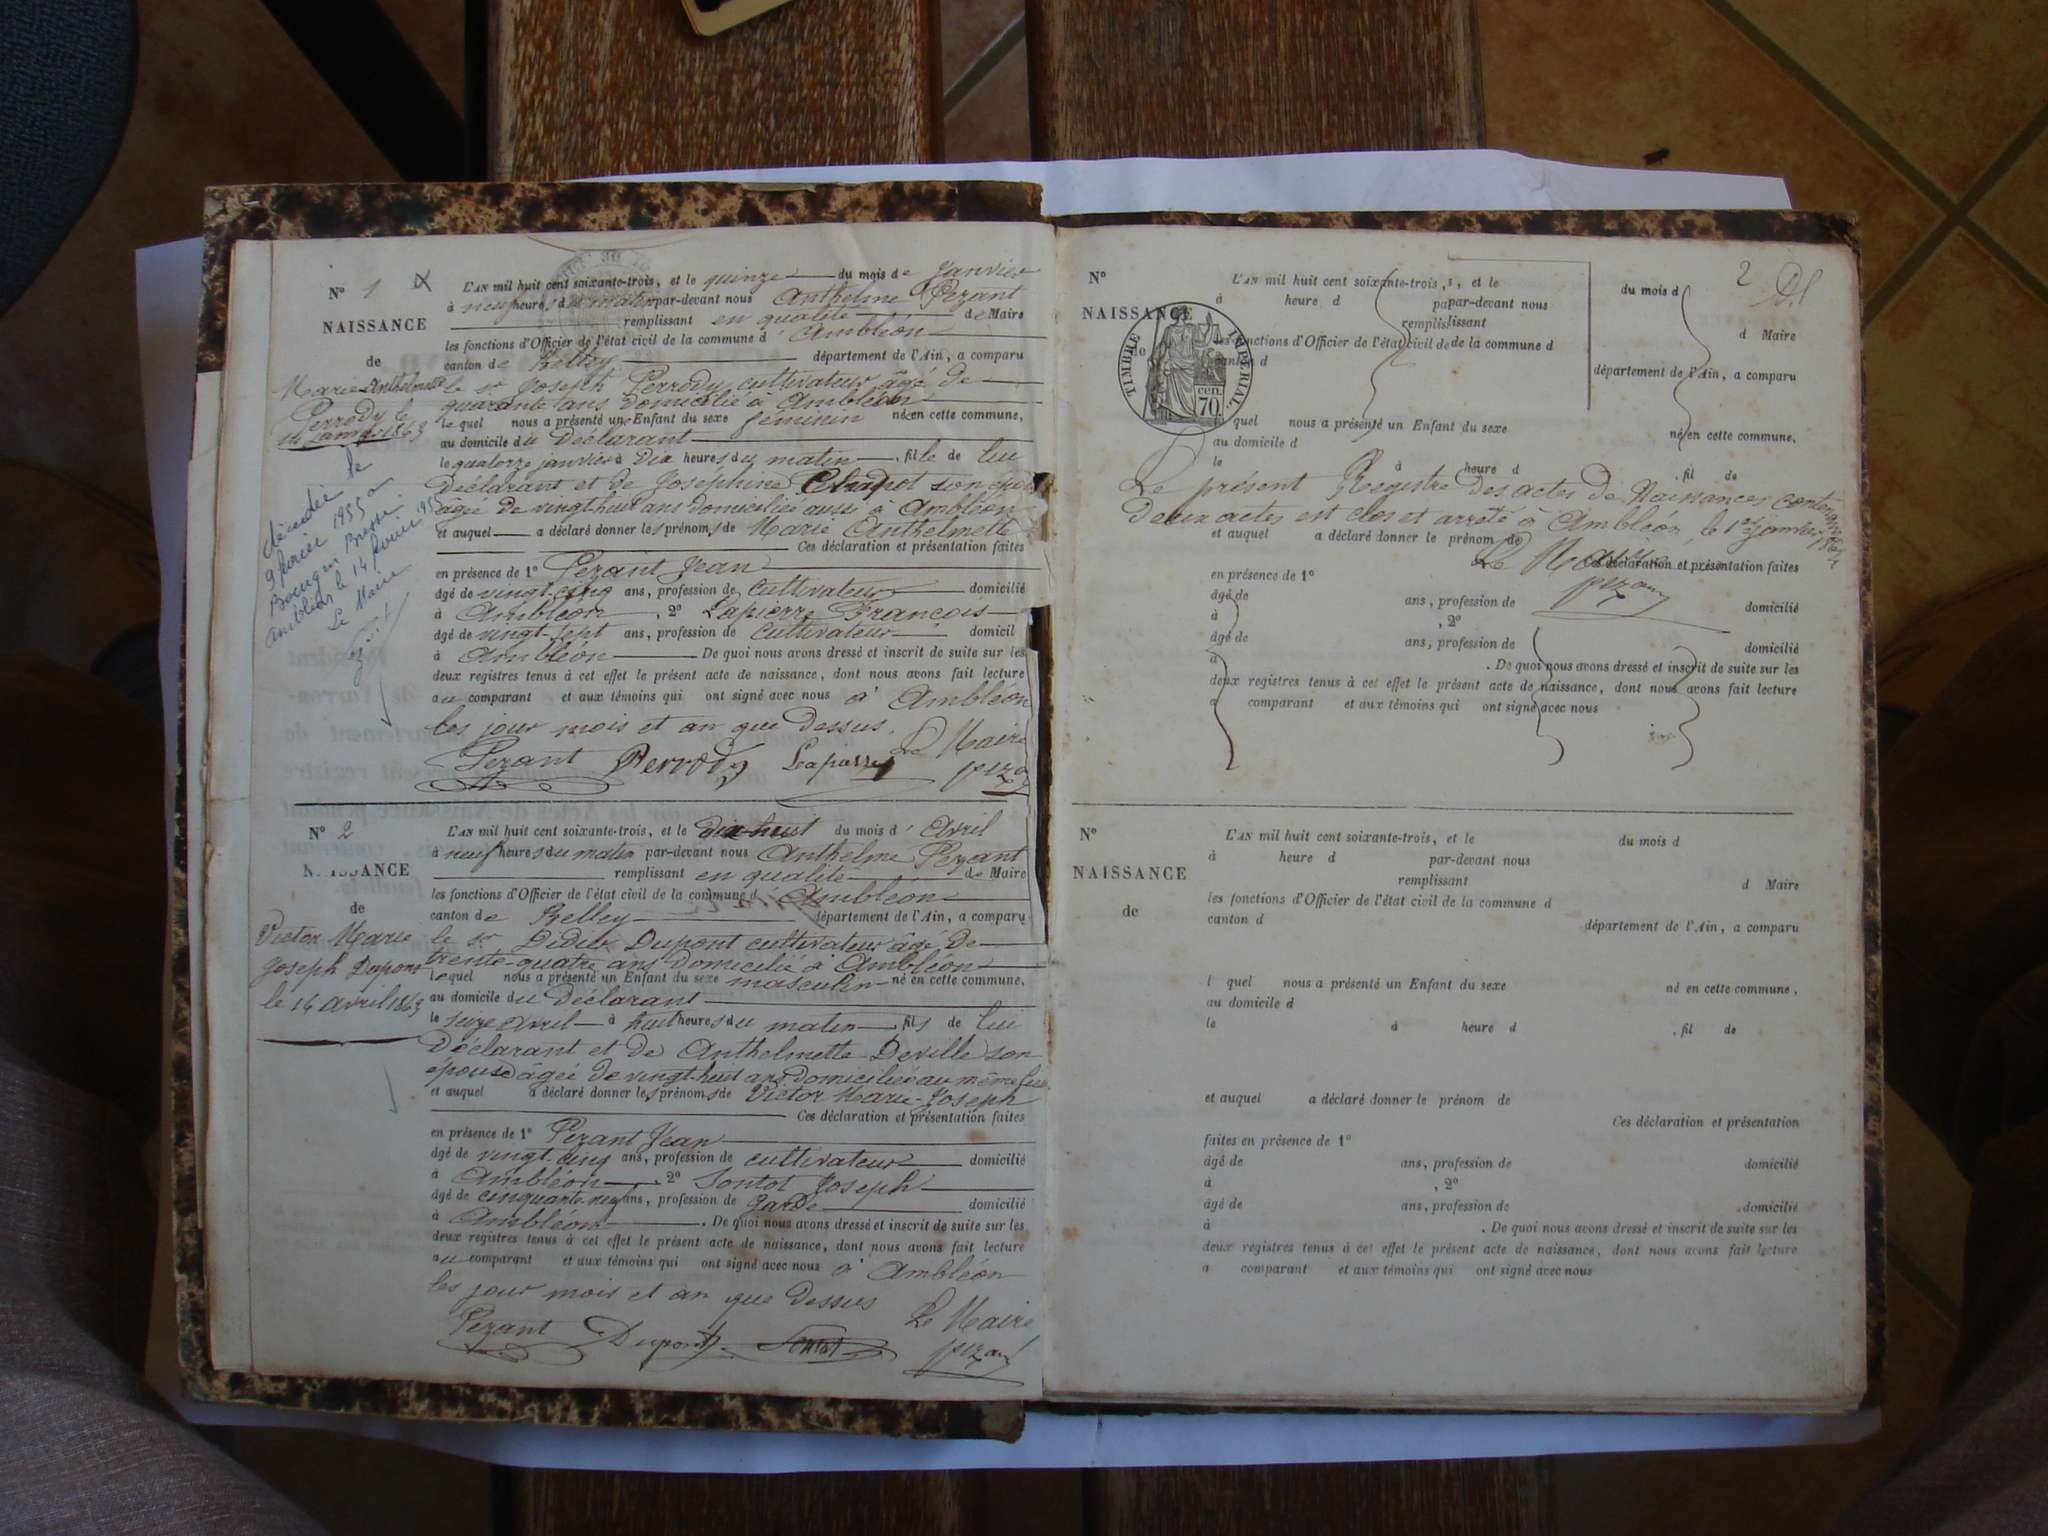 N° 1
NAISSANCE
de
Marie Anthelmette
Perrody le
14 Janvier 1863
décédée le
9 février 1955 à
le 14 février 1955
Le Maire
L'AN mil huit cent soixante-trois, et le quinze du mois de Janvier
à neuf heures du matin par-devant nous Anthelme Pezant
remplissant en qualité de Maire
les fonctions d'Officier de l'état civil de la commune d'Ambléon
canton de Belley département de l'Ain, a comparu
le sr Joseph Perrody cultivateur âgé de
quarante ans domicilié à Ambléon
lequel nous a présenté un Enfant du sexe féminin né en cette commune,
au domicile du Déclarant
le quatorze janvier à dix heures du matin, fille de lui
déclarant et de Joséphine son
âgée de vingt huit ans domiciliée aussi à Ambléon
et auquel a déclaré donner les prénoms de Marie Anthelmette
Ces déclaration et présentation faites
en présence de 1° Pezant Jean
âgé de vingt-cinq ans, profession de cultivateur domicilié
à Ambléon, 2° Lapierre François
âgé de vingt-sept ans, profession de cultivateur domicil
à Ambléon De quoi nous avons dressé et inscrit de suite sur les
deux registres tenus à cet effet le présent acte de naissance, dont nous avons fait lecture
au comparant et aux témoins qui ont signé avec nous à Ambléon
les jour mois et an que dessus.
Le Maire
Pezant Perrody Lapierre
N° 2
NAISSANCE
de
Victor Marie
Joseph Dupont
le 16 avril 1863
L'AN mil huit cent soixante-trois, et le dix-huit du mois d'Avril
à neuf heures du matin par-devant nous Anthelme Pezant
remplissant en qualité de Maire
les fonctions d'Officier de l'état civil de la commune d'Ambléon
canton de Belley département de l'Ain, a comparu
le sr Didier Dupont cultivateur âgé de
trente-quatre ans domicilié à Ambléon
lequel nous a présenté un Enfant du sexe masculin né en cette commune,
au domicile du Déclarant
le seize Avril à huit heures du matin, fils de lui
Déclarant et de Anthelmette Deville son
épouse âgée de vingt-huit ans domiciliée au même lieu
et auquel a déclaré donner les prénoms de Victor Marie-Joseph
Ces déclaration et présentation faites
en présence de 1° Pezant Jean
âgé de vingt-cinq ans, profession de cultivateur domicilié
à Ambléon, 2° Sontot Joseph
âgé de cinquante ans, profession de Garde domicilié
à Ambléon. De quoi nous avons dressé et inscrit de suite sur les
deux registres tenus à cet effet le présent acte de naissance, dont nous avons fait lecture
au comparant et aux témoins qui ont signé avec nous à Ambléon
les jour mois et an que dessus
Le Maire
Pezant Dupont Pezant
2
N°
NAISSANCE
de
TIMBRE IMPÉRIAL
70 cen.
L'AN mil huit cent soixante-trois, et le du mois d
à heure d par-devant nous
remplissant d Maire
les fonctions d'Officier de l'état civil de la commune d
canton d département de l'Ain, a comparu
l quel nous a présenté un Enfant du sexe né en cette commune,
au domicile d
le à heure d , fil de
Le présent Registre des actes de Naissances contenant
deux actes est clos et arrêté à Ambléon, le 1er janvier
et auquel a déclaré donner le prénom de
Le Maire
Ces déclaration et présentation faites
Pezant
en présence de 1°
âgé de ans, profession de domicilié
à , 2°
âgé de ans, profession de domicilié
à . De quoi nous avons dressé et inscrit de suite sur les
deux registres tenus à cet effet le présent acte de naissance, dont nous avons fait lecture
a comparant et aux témoins qui ont signé avec nous
N°
NAISSANCE
de
L'AN mil huit cent soixante-trois, et le du mois d
à heure d par-devant nous
remplissant d Maire
les fonctions d'Officier de l'état civil de la commune d
canton d département de l'Ain, a comparu
l quel nous a présenté un Enfant du sexe né en cette commune,
au domicile d
le à heure d , fil de
et auquel a déclaré donner le prénom de
Ces déclaration et présentation
faites en présence de 1°
âgé de ans, profession de domicilié
à , 2°
âgé de ans, profession de domicilié
à . De quoi nous avons dressé et inscrit de suite sur les
deux registres tenus à cet effet le présent acte de naissance, dont nous avons fait lecture
a comparant et aux témoins qui ont signé avec nous